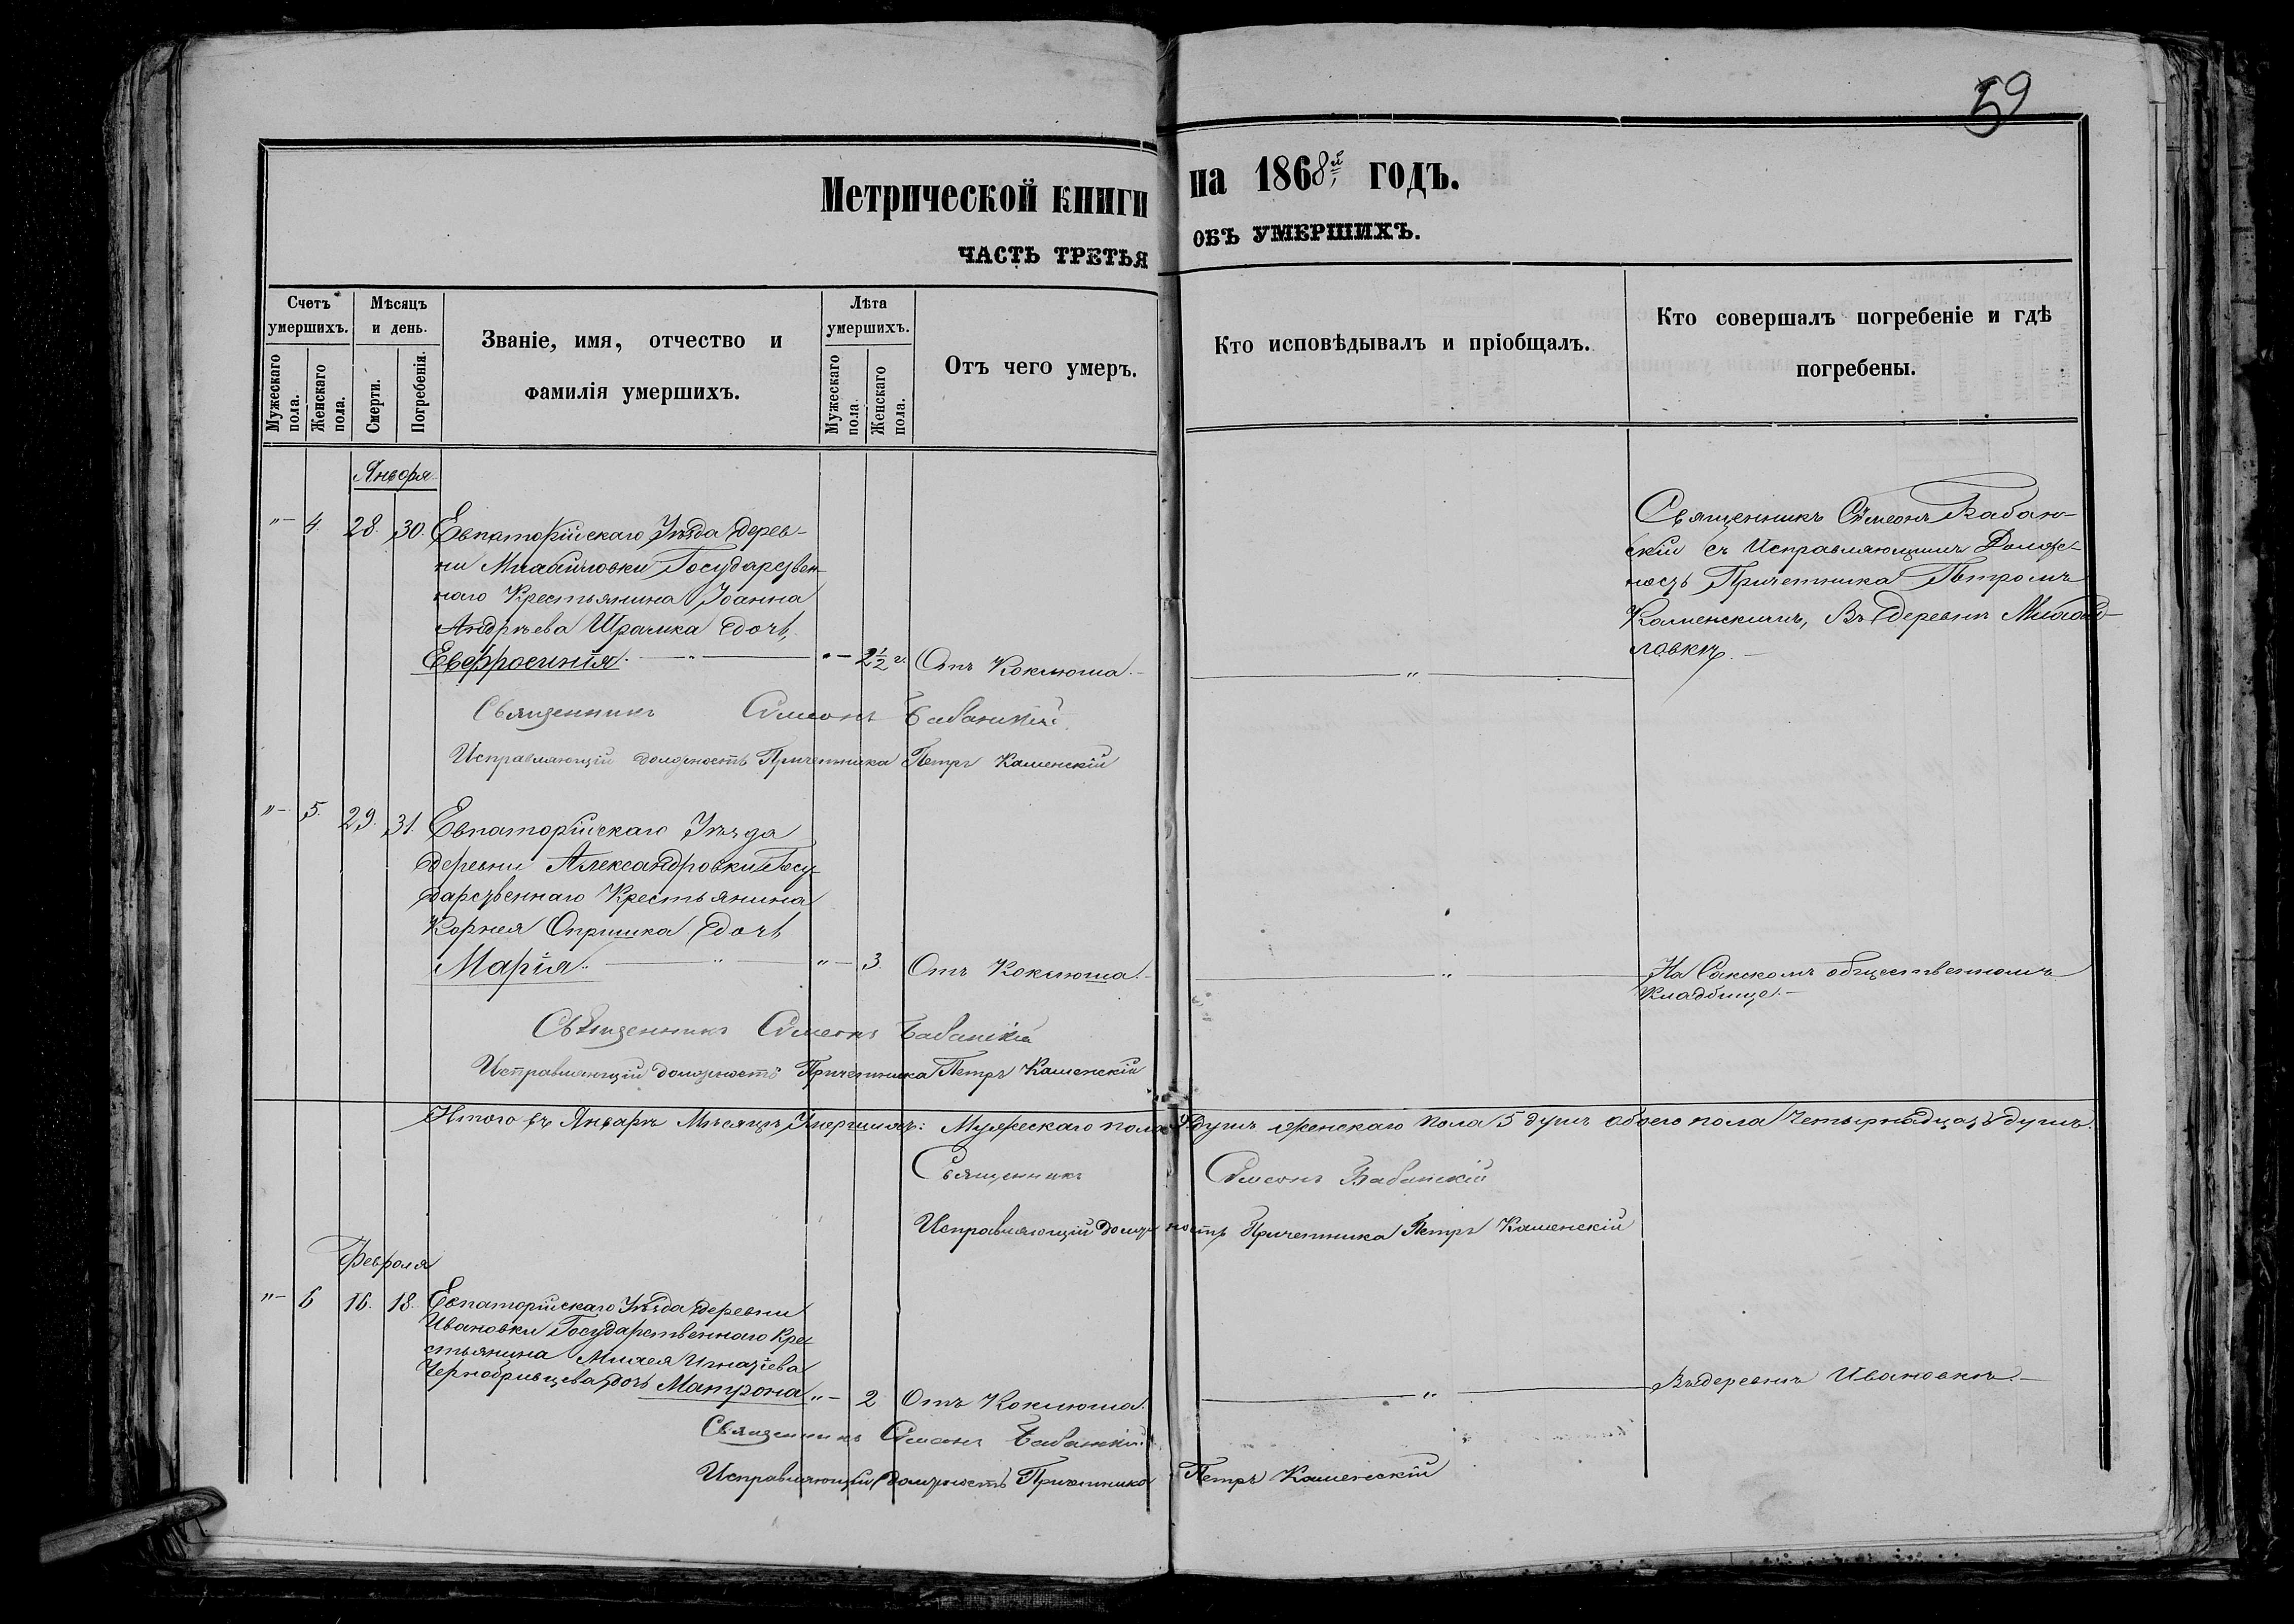 59
Метрической книги на 1868й годъ.
ЧАСТЬ ТРЕТЬЯ ОБЪ УМЕРШИХЪ.
Счетъ умершихъ.
Мужескаго пола.
Женскаго пола.
Мѣсяцъ и день.
Смерти.
Погребенія.
Званіе, имя, отчество и
фамилія умершихъ.
Лѣта умершихъ.
Мужескаго пола.
Женскаго пола.
Отъ чего умеръ.
Кто исповѣдывалъ и пріобщалъ.
Кто совершалъ погребеніе и гдѣ
погребены.
Января
"– 4. 28. 30. Евпаторійскаго Уѣзда дерев-
ни Михайловки Государствен-
наго Крестьянина Іоанна
Андрѣева Шрамка дочь,
Евфросинія. — " — "– 2½ г. Отъ Коклюша.–
— " —
Священникъ Сѵмеонъ Бабан-
скій съ Исправляющимъ Долж-
ность Причетника Петромъ
Каменскимъ, Въ деревнѣ Михай-
ловкѣ.–
Священникъ Сѵмеонъ Бабанскій.
Исправляющій должность Причетника Петръ Каменскій
"– 5. 29. 31. Евпаторійскаго Уѣзда
деревни Александровки Госу-
дарственнаго Крестьянина
Корнея Опришка дочь
Марія. — " — "– 3. Отъ Коклюша.– — " — На Сакскомъ общественномъ
Кладбище.–
Священникъ Сѵмеонъ Бабанскій
Исправляющій должность Причетника Петръ Каменскій
Итого въ Январѣ Мѣсяцѣ Умершихъ: Мужескаго пола 9 душъ женскаго пола 5 душъ обоего пола Четырнадцать душъ.
Священникъ Сѵмеонъ Бабанскій
Исправляющій должность Причетника Петръ Каменскій
Февраля
"– 6 16. 18. Евпаторійскаго Уѣзда деревни
Ивановки Государственнаго Кре-
стьянина Михея Игнатіева
Чернобривцева дочь Матрона "– 2 Отъ Коклюша. — " — Въ деревнѣ Ивановкѣ.–
Священникъ Сѵмеонъ Бабанскій
Исправляющій должность Причетника Петръ Каменскій